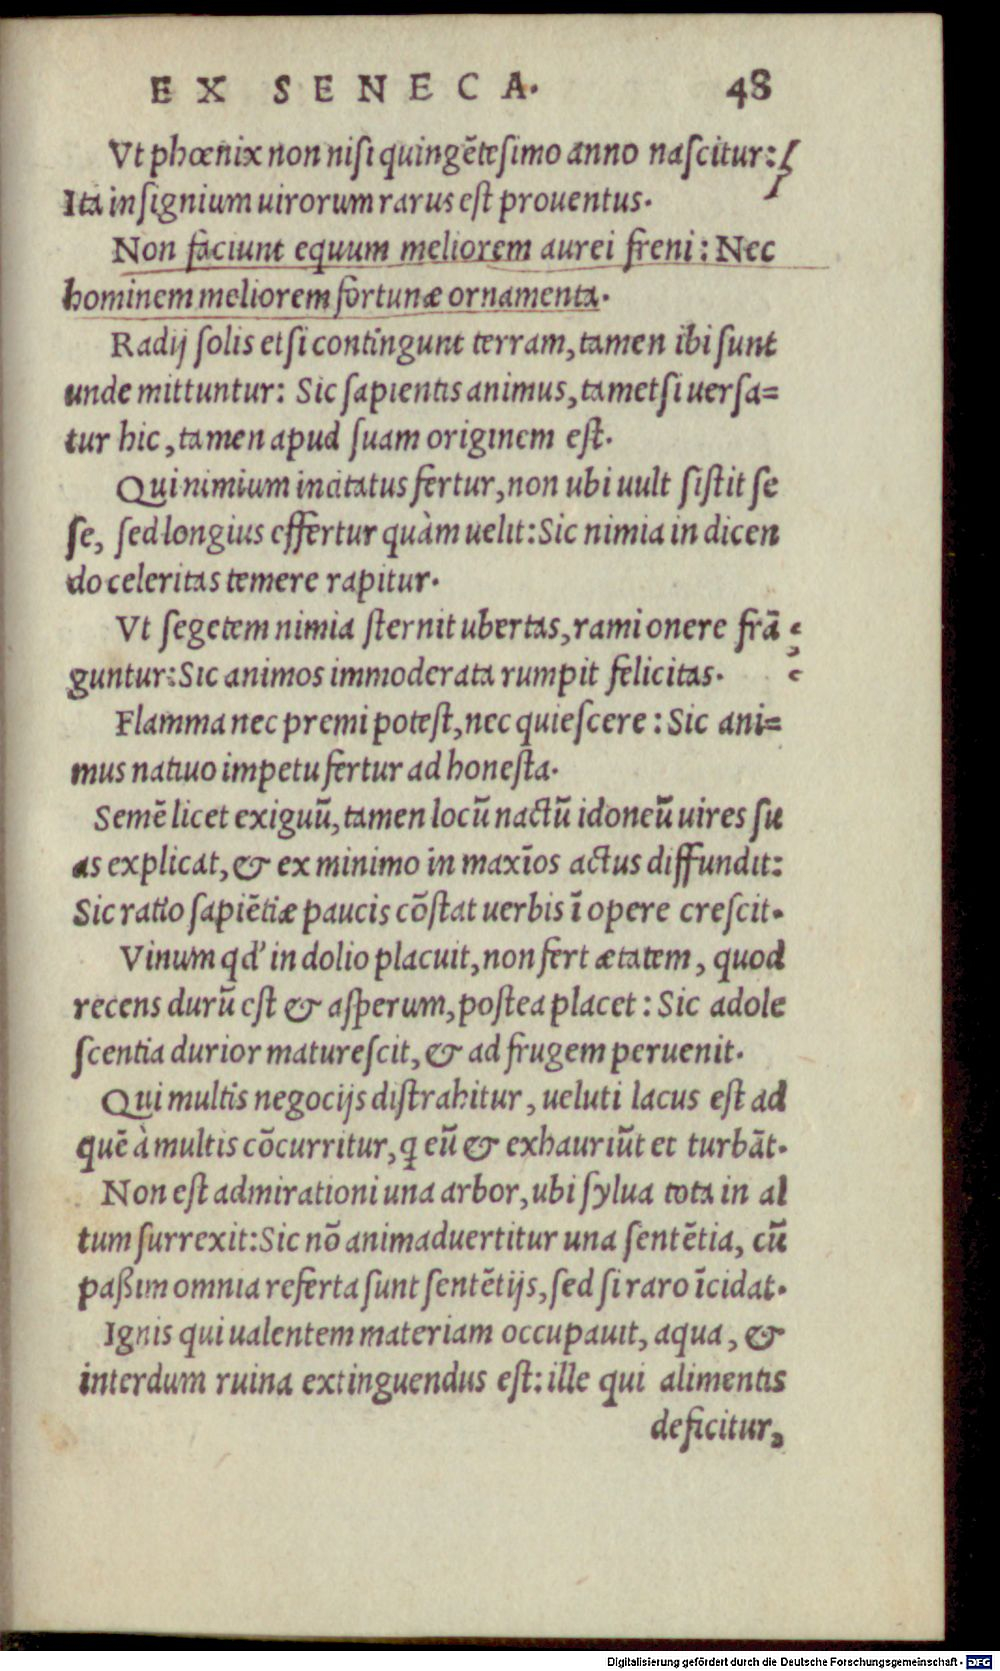 EX SENECA. 48
Vt phœnix non nisi quingētesimo anno nascitur:
Ita insignium uirorum rarus est prouentus.
Non faciunt equum meliorem aurei freni: Nec
hominem meliorem fortunæ ornamenta.
Radij solis etsi contingunt terram, tamen ibi sunt
unde mittuntur: Sic sapientis animus, tametsi uersa=
tur hic, tamen apud suam originem est.
Qui nimium incitatus fertur, non ubi uult sistit se
se, sed longius effertur quàm uelit: Sic nimia in dicen
do celeritas temere rapitur.
Vt segetem nimia sternit ubertas, rami onere frā
guntur: Sic animos immoderata rumpit felicitas.
Flamma nec premi potest, nec quiescere: Sic ani=
mus natiuo impetu fertur ad honesta.
Semē licet exiguū, tamen locū nactū idoneū uires su
as explicat, & ex minimo in maxīos actus diffundit:
Sic ratio sapiētiæ paucis cōstat uerbis ī opere crescit.
Vinum qd' in dolio placuit, non fert ætatem, quod
recens durū est & asperum, postea placet: Sic adole
scentia durior maturescit, & ad frugem peruenit.
Qui multis negocijs distrahitur, ueluti lacus est ad
quē à multis cōcurritur, q eū & exhauriūt et turbāt.
Non est admirationi una arbor, ubi sylua tota in al
tum surrexit: Sic nō animaduertitur una sentētia, cū
paßim omnia referta sunt sentētijs, sed si raro īcidat.
Ignis qui ualentem materiam occupauit, aqua, &
interdum ruina extinguendus est: ille qui alimentis
deficitur,
Digitalisierung gefördert durch die Deutsche Forschungsgemeinschaft - DFG